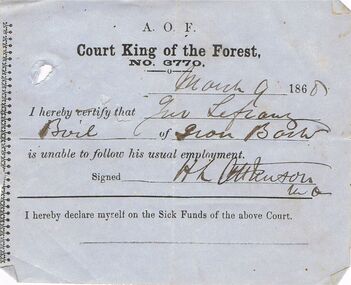 A. O. F.
Court King of the Forest,
NO. 3770.
March 9 1868
I hereby certify that Jno
Boil of Iron Bark
is unable to follow his usual employment.
Signed H L Atkinson
I hereby declare myself on the Sick Funds of the above Court.